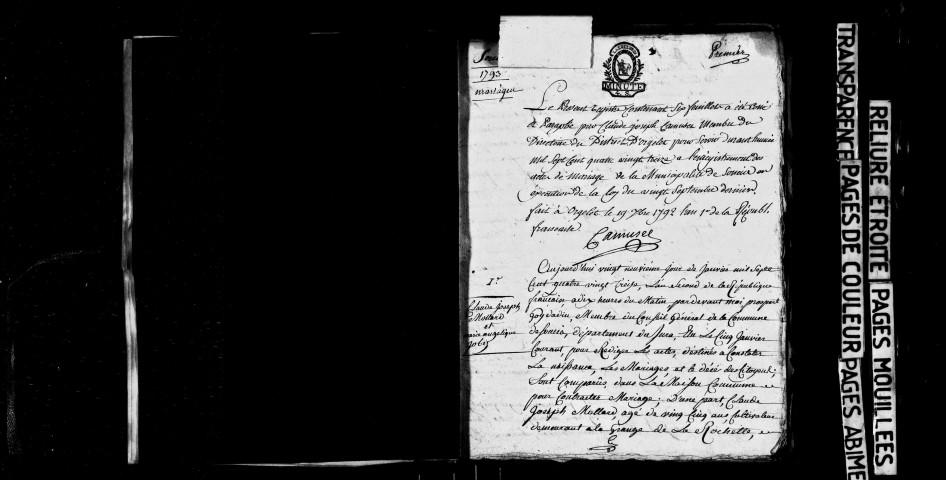 1793
mariage
MINUTE
Premier
Le present registre Contenant Six feuillets a été Coté
et Paraphé par Claude joseph Camuset Membre du
Directoire du District D'orgelet pour servir Durant l'année
mil Sept Cent quatre vingt treize a l'enregistrement des
actes de Mariage de la Municipalité de en
execution de la loy du vingt Septembre dernier
fait à Orgelet le 19 Xbre 1792 l'an 1er de la Républ.
francaise
Camuset
1er
Claude Joseph
Mollard
et
marie angelique
Aujourd'hui vingt neuvieme jour de Janvier mil Sept
Cent quatre vingt Treize, L'an Second de la République
française a dix heures du Matin pardevant moi prospert
Membre du Conseil Général de la Commune
département du Jura, Elu Le Cinq Janvier
Courant, pour Rediger Les actes, destinés a Constater
La naissance, Les Mariages, et le décé des Citoyens;
Sont Comparûs, dans La Maison Commune
pour Contracter Mariage; D'une part, Claude
Joseph Mollard, agé de vingt Cinq ans, Cultivateur
demeurant a la Grange de La Rochette,
TRANSPARENCE PAGES DE COULEUR PAGES ABIME
RELIURE ÉTROITE PAGES MOUILLEES